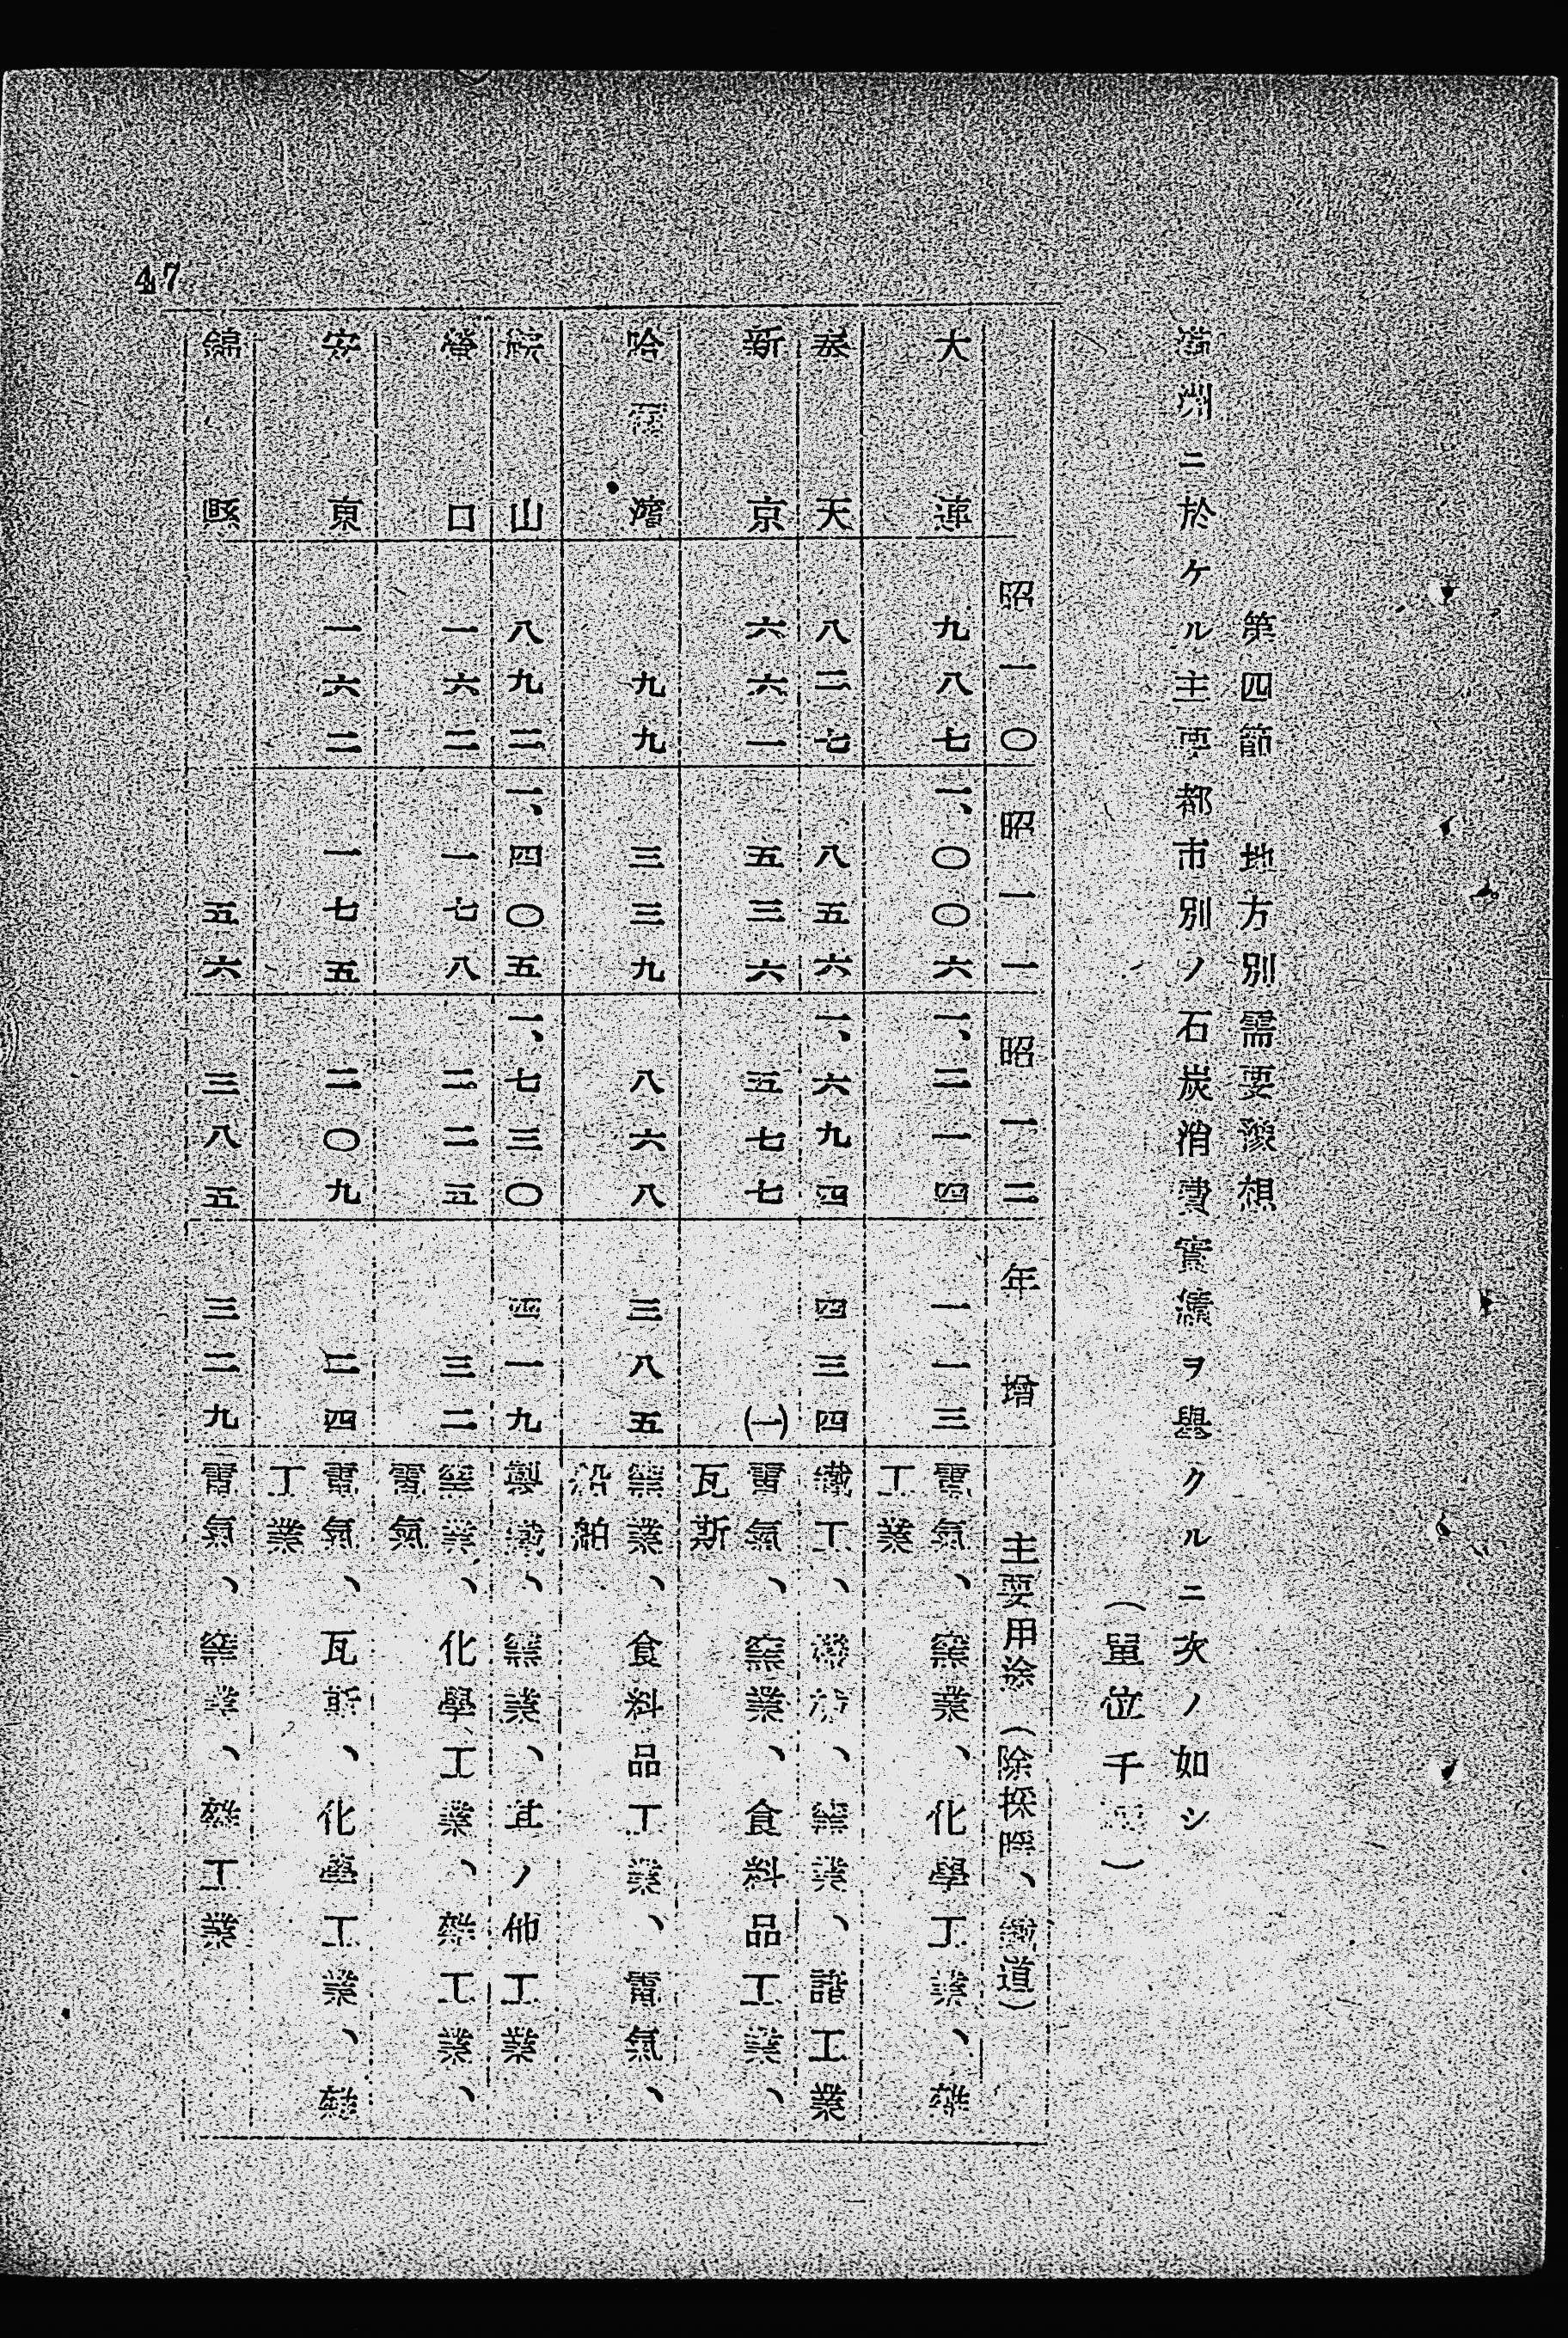 第四節　地方別需要豫想
滿州ニ於ケル主要都市別ノ石炭消費實績ヲ擧クルニ次ノ如シ
（單位千）
昭一〇　昭一一　昭一二　年增　主要用途（除採＿、鐵道）
大連　九八七　一、〇〇六　一、二一四　一一三　電氣、窯業、化學工業、雜工業
奉天　八二七　八五六　一、六九四　四三四　鐵工、窯業、諸工業
新京　六六一　五三六　五七七　(一)　電氣、窯業、食料品工業、瓦斯
哈爾濱　九九　三三九　八六八　三八五　窯業、食料品工業、電氣、船舶
山　八九二　一、四〇五　一、七三〇　四一九　製鐵、窯業、其ノ他工業
營口　一六二　一七八　二二五　三二　窯業、化學工業、雜工業、電氣
安東　一六二　一七五　二〇九　二四　電氣、瓦斯、化學工業、雜工業
錦縣　五六　三八五　三二九　電氣、窯業、雜工業
47